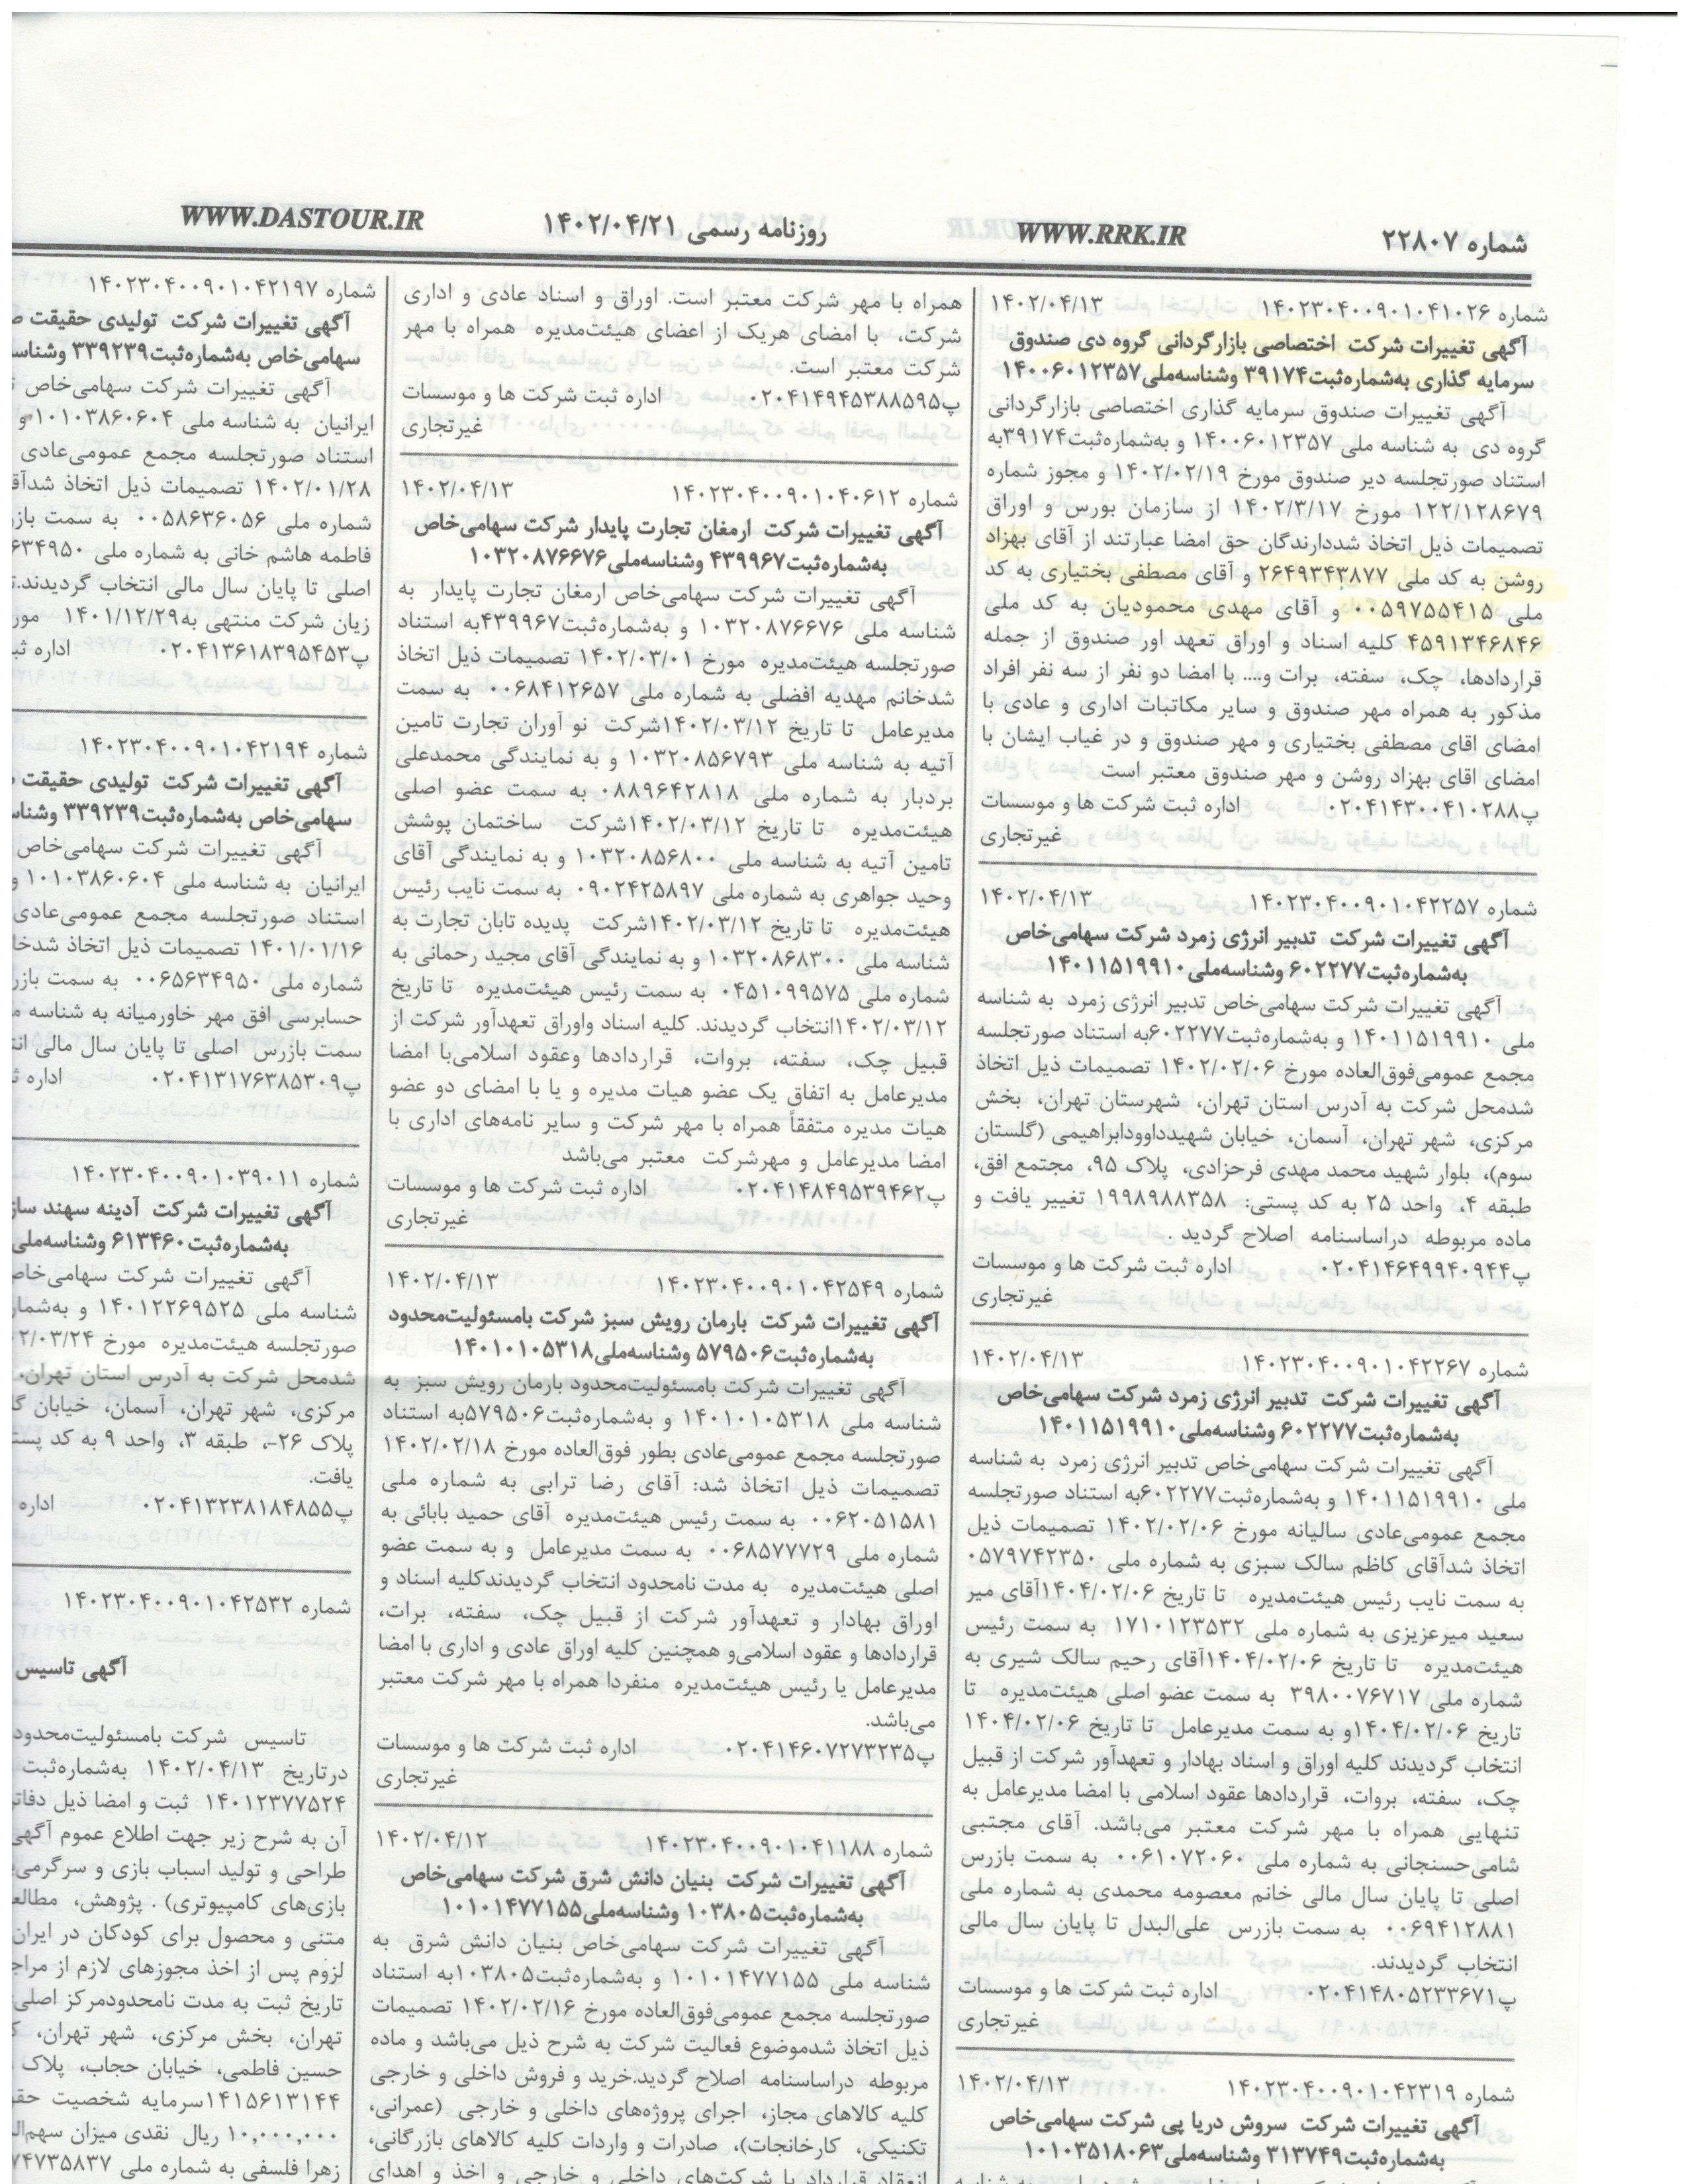 شماره ۲۲۸۰۷
WWW.RRK.IR
روزنامه رسمی ۱۴۰۲/۰۴/۲۱
WWW.DASTOUR.IR
شماره ۱۴۰۲۳۰۴۰۰۹۰۱۰۴۱۰۲۶ ۱۴۰۲/۰۴/۱۳
آگهی تغییرات شرکت اختصاصی بازارگردانی گروه دی صندوق
سرمایه گذاری به‌شماره‌ثبت۳۹۱۷۴ وشناسه‌ملی۱۴۰۰۶۰۱۲۳۵۷
آگهی تغییرات صندوق سرمایه گذاری اختصاصی بازارگردانی
گروه دی به شناسه ملی ۱۴۰۰۶۰۱۲۳۵۷ و به‌شماره‌ثبت۳۹۱۷۴به
استناد صورتجلسه دیر صندوق مورخ ۱۴۰۲/۰۲/۱۹ و مجوز شماره
۱۲۲/۱۲۸۶۷۹ مورخ ۱۴۰۲/۳/۱۷ از سازمان بورس و اوراق
تصمیمات ذیل اتخاذ شددارندگان حق امضا عبارتند از آقای بهزاد
روشن به کد ملی ۲۶۴۹۳۴۳۸۷۷ و آقای مصطفی بختیاری به کد
ملی ۰۰۵۹۷۵۵۴۱۵ و آقای مهدی محمودیان به کد ملی
۴۵۹۱۳۴۶۸۴۶ کلیه اسناد و اوراق تعهد اور صندوق از جمله
قراردادها، چک، سفته، برات و.... با امضا دو نفر از سه نفر افراد
مذکور به همراه مهر صندوق و سایر مکاتبات اداری و عادی با
امضای اقای مصطفی بختیاری و مهر صندوق و در غیاب ایشان با
امضای اقای بهزاد روشن و مهر صندوق معتبر است
پ۰۲۰۴۱۴۳۰۰۴۱۰۲۸۸ اداره ثبت شرکت ها و موسسات
غیرتجاری
شماره ۱۴۰۲۳۰۴۰۰۹۰۱۰۴۲۲۵۷ ۱۴۰۲/۰۴/۱۳
آگهی تغییرات شرکت تدبیر انرژی زمرد شرکت سهامی‌خاص
به‌شماره‌ثبت۶۰۲۲۷۷ وشناسه‌ملی۱۴۰۱۱۵۱۹۹۱۰
آگهی تغییرات شرکت سهامی‌خاص تدبیر انرژی زمرد به شناسه
ملی ۱۴۰۱۱۵۱۹۹۱۰ و به‌شماره‌ثبت۶۰۲۲۷۷به استناد صورتجلسه
مجمع عمومی‌فوق‌العاده مورخ ۱۴۰۲/۰۲/۰۶ تصمیمات ذیل اتخاذ
شدمحل شرکت به آدرس استان تهران، شهرستان تهران، بخش
مرکزی، شهر تهران، آسمان، خیابان شهیدداوودابراهیمی (گلستان
سوم)، بلوار شهید محمد مهدی فرحزادی، پلاک ۹۵، مجتمع افق،
طبقه ۴، واحد ۲۵ به کد پستی: ۱۹۹۸۹۸۸۳۵۸ تغییر یافت و
ماده مربوطه دراساسنامه اصلاح گردید .
پ۰۲۰۴۱۴۶۴۹۹۴۰۹۴۴ اداره ثبت شرکت ها و موسسات
غیرتجاری
شماره ۱۴۰۲۳۰۴۰۰۹۰۱۰۴۲۲۶۷ ۱۴۰۲/۰۴/۱۳
آگهی تغییرات شرکت تدبیر انرژی زمرد شرکت سهامی‌خاص
به‌شماره‌ثبت۶۰۲۲۷۷ وشناسه‌ملی۱۴۰۱۱۵۱۹۹۱۰
آگهی تغییرات شرکت سهامی‌خاص تدبیر انرژی زمرد به شناسه
ملی ۱۴۰۱۱۵۱۹۹۱۰ و به‌شماره‌ثبت۶۰۲۲۷۷به استناد صورتجلسه
مجمع عمومی‌عادی سالیانه مورخ ۱۴۰۲/۰۲/۰۶ تصمیمات ذیل
اتخاذ شدآقای کاظم سالک سبزی به شماره ملی ۰۵۷۹۷۴۲۳۵۰
به سمت نایب رئیس هیئت‌مدیره تا تاریخ ۱۴۰۴/۰۲/۰۶آقای میر
سعید میرعزیزی به شماره ملی ۱۷۱۰۱۲۳۵۳۲ به سمت رئیس
هیئت‌مدیره تا تاریخ ۱۴۰۴/۰۲/۰۶آقای رحیم سالک شیری به
شماره ملی ۳۹۸۰۰۷۶۷۱۷ به سمت عضو اصلی هیئت‌مدیره تا
تاریخ ۱۴۰۴/۰۲/۰۶و به سمت مدیرعامل تا تاریخ ۱۴۰۴/۰۲/۰۶
انتخاب گردیدند کلیه اوراق و اسناد بهادار و تعهدآور شرکت از قبیل
چک، سفته، بروات، قراردادها عقود اسلامی با امضا مدیرعامل به
تنهایی همراه با مهر شرکت معتبر می‌باشد. آقای مجتبی
شامی‌حسنجانی به شماره ملی ۰۰۶۱۰۷۲۰۶۰ به سمت بازرس
اصلی تا پایان سال مالی خانم معصومه محمدی به شماره ملی
۰۰۶۹۴۱۲۸۸۱ به سمت بازرس علی‌البدل تا پایان سال مالی
انتخاب گردیدند.
پ۰۲۰۴۱۴۸۰۵۲۳۳۶۷۱ اداره ثبت شرکت ها و موسسات
غیرتجاری
شماره ۱۴۰۲۳۰۴۰۰۹۰۱۰۴۲۳۱۹ ۱۴۰۲/۰۴/۱۳
آگهی تغییرات شرکت سروش دریا پی شرکت سهامی‌خاص
به‌شماره‌ثبت۳۱۳۷۴۹ وشناسه‌ملی۱۰۱۰۳۵۱۸۰۶۳
همراه با مهر شرکت معتبر است. اوراق و اسناد عادی و اداری
شرکت، با امضای هریک از اعضای هیئت‌مدیره همراه با مهر
شرکت معتبر است.
پ۰۲۰۴۱۴۹۴۵۳۸۸۵۹۵ اداره ثبت شرکت ها و موسسات
غیرتجاری
شماره ۱۴۰۲۳۰۴۰۰۹۰۱۰۴۰۶۱۲ ۱۴۰۲/۰۴/۱۳
آگهی تغییرات شرکت ارمغان تجارت پایدار شرکت سهامی‌خاص
به‌شماره‌ثبت۴۳۹۹۶۷ وشناسه‌ملی۱۰۳۲۰۸۷۶۶۷۶
آگهی تغییرات شرکت سهامی‌خاص ارمغان تجارت پایدار به
شناسه ملی ۱۰۳۲۰۸۷۶۶۷۶ و به‌شماره‌ثبت۴۳۹۹۶۷به استناد
صورتجلسه هیئت‌مدیره مورخ ۱۴۰۲/۰۳/۰۱ تصمیمات ذیل اتخاذ
شدخانم مهدیه افضلی به شماره ملی ۰۰۶۸۴۱۲۶۵۷ به سمت
مدیرعامل تا تاریخ ۱۴۰۲/۰۳/۱۲شرکت نو آوران تجارت تامین
آتیه به شناسه ملی ۱۰۳۲۰۸۵۶۷۹۳ و به نمایندگی محمدعلی
بردبار به شماره ملی ۰۸۸۹۶۴۲۸۱۸ به سمت عضو اصلی
هیئت‌مدیره تا تاریخ ۱۴۰۲/۰۳/۱۲شرکت ساختمان پوشش
تامین آتیه به شناسه ملی ۱۰۳۲۰۸۵۶۸۰۰ و به نمایندگی آقای
وحید جواهری به شماره ملی ۰۹۰۲۴۲۵۸۹۷ به سمت نایب رئیس
هیئت‌مدیره تا تاریخ ۱۴۰۲/۰۳/۱۲شرکت پدیده تابان تجارت به
شناسه ملی ۱۰۳۲۰۸۶۸۳۰۰ و به نمایندگی آقای مجید رحمانی به
شماره ملی ۰۴۵۱۰۹۹۵۷۵ به سمت رئیس هیئت‌مدیره تا تاریخ
۱۴۰۲/۰۳/۱۲انتخاب گردیدند. کلیه اسناد واوراق تعهدآور شرکت از
قبیل چک، سفته، بروات، قراردادها وعقود اسلامی‌با امضا
مدیرعامل به اتفاق یک عضو هیات مدیره و یا با امضای دو عضو
هیات مدیره متفقاً همراه با مهر شرکت و سایر نامه‌های اداری با
امضا مدیرعامل و مهرشرکت معتبر می‌باشد
پ۰۲۰۴۱۴۸۴۹۵۳۹۴۶۲ اداره ثبت شرکت ها و موسسات
غیرتجاری
شماره ۱۴۰۲۳۰۴۰۰۹۰۱۰۴۲۵۴۹ ۱۴۰۲/۰۴/۱۳
آگهی تغییرات شرکت بارمان رویش سبز شرکت بامسئولیت‌محدود
به‌شماره‌ثبت۵۷۹۵۰۶ وشناسه‌ملی۱۴۰۱۰۱۰۵۳۱۸
آگهی تغییرات شرکت بامسئولیت‌محدود بارمان رویش سبز به
شناسه ملی ۱۴۰۱۰۱۰۵۳۱۸ و به‌شماره‌ثبت۵۷۹۵۰۶به استناد
صورتجلسه مجمع عمومی‌عادی بطور فوق‌العاده مورخ ۱۴۰۲/۰۲/۱۸
تصمیمات ذیل اتخاذ شد: آقای رضا ترابی به شماره ملی
۰۰۶۲۰۵۱۵۸۱ به سمت رئیس هیئت‌مدیره آقای حمید بابائی به
شماره ملی ۰۰۶۸۵۷۷۷۲۹ به سمت مدیرعامل و به سمت عضو
اصلی هیئت‌مدیره به مدت نامحدود انتخاب گردیدندکلیه اسناد و
اوراق بهادار و تعهدآور شرکت از قبیل چک، سفته، برات،
قراردادها و عقود اسلامی‌و همچنین کلیه اوراق عادی و اداری با امضا
مدیرعامل یا رئیس هیئت‌مدیره منفردا همراه با مهر شرکت معتبر
می‌باشد.
پ۰۲۰۴۱۴۶۰۷۲۷۳۲۳۵ اداره ثبت شرکت ها و موسسات
غیرتجاری
شماره ۱۴۰۲۳۰۴۰۰۹۰۱۰۴۱۱۸۸ ۱۴۰۲/۰۴/۱۲
آگهی تغییرات شرکت بنیان دانش شرق شرکت سهامی‌خاص
به‌شماره‌ثبت۱۰۳۸۰۵ وشناسه‌ملی۱۰۱۰۱۴۷۷۱۵۵
آگهی تغییرات شرکت سهامی‌خاص بنیان دانش شرق به
شناسه ملی ۱۰۱۰۱۴۷۷۱۵۵ و به‌شماره‌ثبت۱۰۳۸۰۵به استناد
صورتجلسه مجمع عمومی‌فوق‌العاده مورخ ۱۴۰۲/۰۲/۱۶ تصمیمات
ذیل اتخاذ شدموضوع فعالیت شرکت به شرح ذیل می‌باشد و ماده
مربوطه دراساسنامه اصلاح گردید.خرید و فروش داخلی و خارجی
کلیه کالاهای مجاز، اجرای پروژه‌های داخلی و خارجی (عمرانی،
تکنیکی، کارخانجات)، صادرات و واردات کلیه کالاهای بازرگانی،
انعقاد قرارداد با شرکت‌های داخلی و خارجی و اخذ و اهدای
شماره ۱۴۰۲۳۰۴۰۰۹۰۱۰۴۲۱۹۷
آگهی تغییرات شرکت تولیدی حقیقت
سهامی‌خاص به‌شماره‌ثبت۳۳۹۲۳۹
آگهی تغییرات شرکت سهامی‌خاص
ایرانیان به شناسه ملی ۱۰۱۰۳۸۶۰۶۰۴ و
استناد صورتجلسه مجمع عمومی‌عادی
۱۴۰۲/۰۱/۲۸ تصمیمات ذیل اتخاذ
شماره ملی ۰۰۵۸۶۳۶۰۵۶ به سمت
فاطمه هاشم خانی به شماره ملی
اصلی تا پایان سال مالی انتخاب گردیدند.
زیان شرکت منتهی به۱۴۰۱/۱۲/۲۹
پ۰۲۰۴۱۳۶۱۸۳۹۵۴۵۳ اداره
شماره ۱۴۰۲۳۰۴۰۰۹۰۱۰۴۲۱۹۴
آگهی تغییرات شرکت تولیدی حقیقت
سهامی‌خاص به‌شماره‌ثبت۳۳۹۲۳۹
آگهی تغییرات شرکت سهامی‌خاص
ایرانیان به شناسه ملی ۱۰۱۰۳۸۶۰۶۰۴ و
استناد صورتجلسه مجمع عمومی‌عادی
۱۴۰۱/۰۱/۱۶ تصمیمات ذیل اتخاذ
شماره ملی ۰۰۶۵۶۳۴۹۵۰ به سمت
حسابرسی افق مهر خاورمیانه به شناسه
سمت بازرس اصلی تا پایان سال مالی
پ۰۲۰۴۱۳۱۷۶۳۸۵۳۰۹ اداره
شماره ۱۴۰۲۳۰۴۰۰۹۰۱۰۳۹۰۱۱
آگهی تغییرات شرکت آدینه سهند
به‌شماره‌ثبت۶۱۳۴۶۰ وشناسه‌ملی
آگهی تغییرات شرکت سهامی‌خاص
شناسه ملی ۱۴۰۱۲۲۶۹۵۲۵ و
صورتجلسه هیئت‌مدیره مورخ
شدمحل شرکت به آدرس استان تهران،
مرکزی، شهر تهران، آسمان، خیابان
پلاک ۲۶-، طبقه ۳، واحد ۹ به کد
یافت.
پ۰۲۰۴۱۳۲۳۸۱۸۴۸۵۵ اداره
شماره ۱۴۰۲۳۰۴۰۰۹۰۱۰۴۲۵۳۲
آگهی تاسیس
تاسیس شرکت بامسئولیت‌محدود
درتاریخ ۱۴۰۲/۰۴/۱۳ به‌شماره‌ثبت
۱۴۰۱۲۳۷۷۵۲۴ ثبت و امضا ذیل
آن به شرح زیر جهت اطلاع عموم آگهی
طراحی و تولید اسباب بازی و سرگرمی
بازی‌های کامپیوتری) . پژوهش،
متنی و محصول برای کودکان در ایران
لزوم پس از اخذ مجوزهای لازم از
تاریخ ثبت به مدت نامحدودمرکز اصلی
تهران، بخش مرکزی، شهر تهران،
حسین فاطمی، خیابان حجاب، پلاک
۱۴۱۵۶۱۳۱۴۴سرمایه شخصیت
۱۰,۰۰۰,۰۰۰ ریال نقدی میزان
زهرا فلسفی به شماره ملی